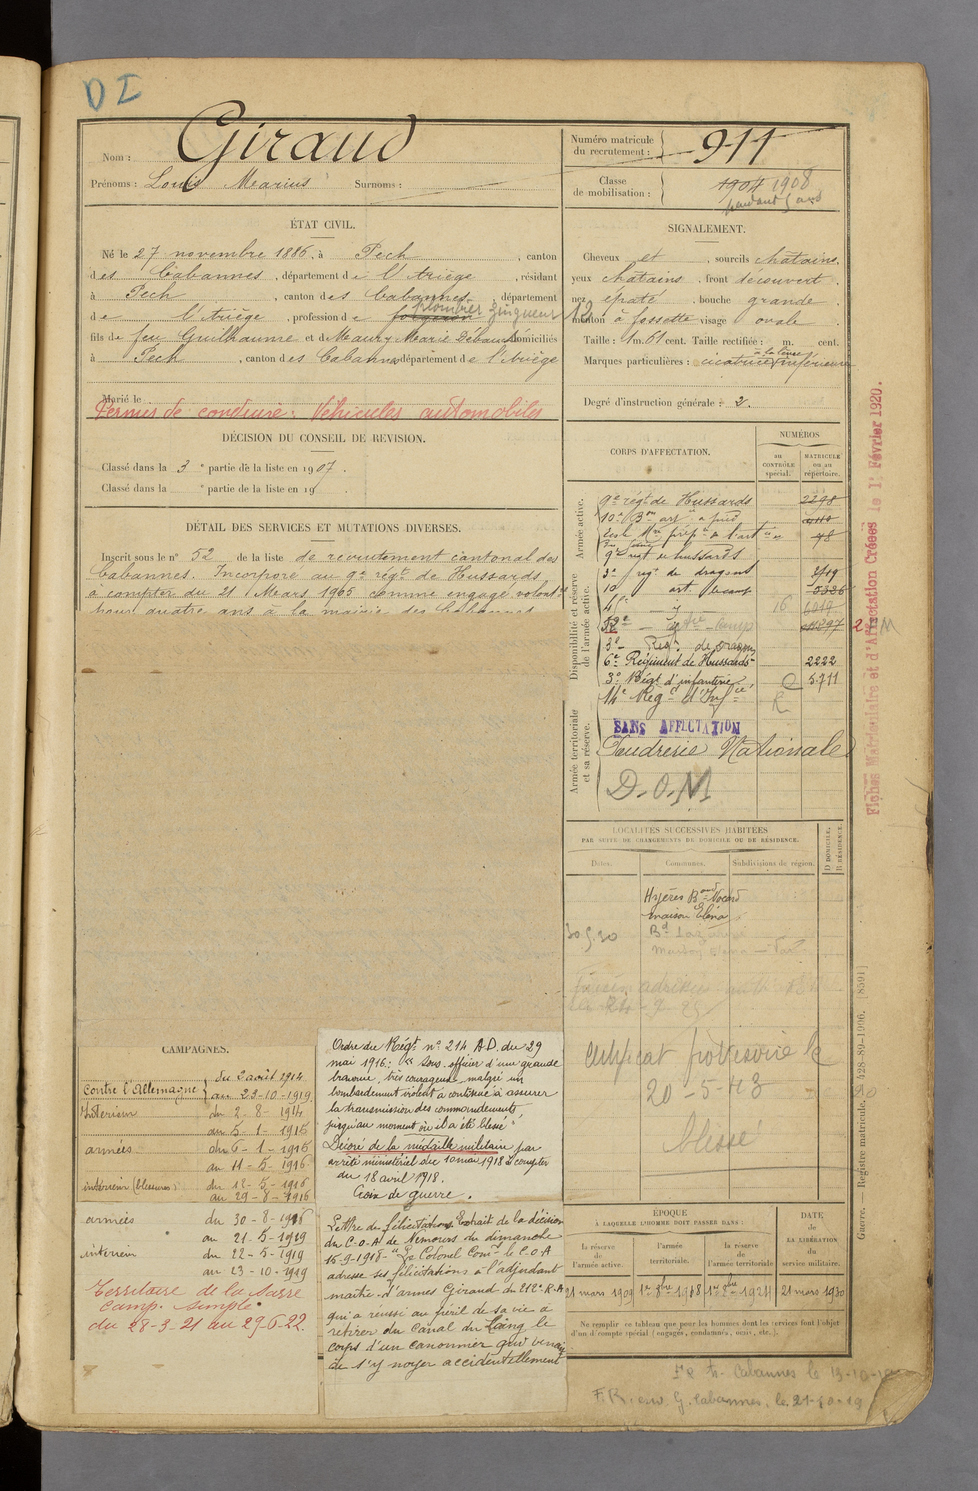 DI
Nom : Giraud
Prénoms : Louis Marius Surnoms :
Numéro matricule du recrutement : 911
Classe de mobilisation : 1904 1908
ÉTAT CIVIL.
Né le 27 novembre 1886, à Pech, canton
des Cabannes, département de l'Ariège, résidant
à Pech, canton des Cabannes, département
de l'Ariège, profession de forgeron plombier zingueur
fils de feu Guilhaume et de Maury Marie domiciliés
à Pech, canton des Cabannes département de l'Ariège
Marié le
Permis de conduire: Véhicules automobiles
SIGNALEMENT.
Cheveux et, sourcils châtains.
yeux châtains, front découvert.
nez épaté, bouche grande.
menton à fossette visage ovale.
Taille : 1 m. 61 cent. Taille rectifiée : m. cent.
Marques particulières : cicatrice à la lèvre inférieure
Degré d'instruction générale : 2.
DÉCISION DU CONSEIL DE REVISION.
Classé dans la 3e partie de la liste en 1907.
Classé dans la e partie de la liste en 19
DÉTAIL DES SERVICES ET MUTATIONS DIVERSES.
Inscrit sous le n° 52 de la liste de recrutement cantonal des
Cabannes. Incorporé au 9e régt de Hussards
à compter du 21 Mars 1905 comme engagé volontre
pour quatre ans à la mairie des Cabannes
CORPS D'AFFECTATION.
NUMÉROS
au CONTRÔLE spécial.
MATRICULE ou au répertoire.
Armée active.
9e régt de Hussards 2298
10e Bon artie à pied
9e régt de hussards
Disponibilité et réserve de l'armée active.
3e régt de dragons 3719
10 art. 5326
16 6019
3e Regt de dragons
6e Régiment de Hussards 2222
3e Régt d'infanterie C 5.711
14e Regt d'Infie R
Armée territoriale et sa réserve.
SANS AFFECTATION
Poudrerie Nationale
D.O.M
Fiches Matriculaire et d'Affectation Créées le 1r Février 1920.
LOCALITÉS SUCCESSIVES HABITÉES
PAR SUITE DE CHANGEMENTS DE DOMICILE OU DE RÉSIDENCE.
Dates. Communes. Subdivisions de région. D DOMICILE. R RÉSIDENCE.
Hyères Bard Nocard
maison Eléna
30.5.30
Certificat provisoire le
20-5-43
blessé
CAMPAGNES.
Contre l'Allemagne du 2 août 1914
au 23-10-1919.
Intérieur du 2-8-1914
au 5-1-1915
armées du 6-1-1915
au 11-5-1916
intérieur (blessures) du 12-5-1916
au 29-8-1916
armées du 30-8-1916
au 21-5-1919
intérieur du 22-5-1919
au 23-10-1919
Territoire de la Sarre
Camp. simple
du 28-3-21 au 29-6-22.
Ordre du Régt n° 214 A.D. du 29
mai 1916: "Sous-officier d'une grande
bravoure, très courageux, malgré un
bombardement violent a continué à assurer
la transmission des commandements,
jusqu'au moment où il a été blessé"
Décoré de la médaille militaire par
arrêté ministériel du 10 mai 1918 à compter
du 18 avril 1918.
Croix de guerre.
Lettre de félicitations. Extrait de la décision
du C.O.A. de Nemours du dimanche
15-9-1918 "Le Colonel Comt le C.O.A
adresse ses félicitations à l'adjudant
maître d'armes Giraud du 212e R.A
qui a réussi au péril de sa vie à
retirer du canal du Loing le
corps d'un canonnier qui venait
de s'y noyer accidentellement
ÉPOQUE
À LAQUELLE L'HOMME DOIT PASSER DANS :
la réserve de l'armée active. l'armée territoriale. la réserve de l'armée territoriale
DATE de LA LIBÉRATION du service militaire.
21 mars 1909 1er 8bre 1918 1er 8bre 1924 21 mars 1930
Ne remplir ce tableau que pour les hommes dont les services font l'objet
d'un décompte spécial (engagés, condamnés, omis, etc.).
Guerre. — Registre matricule. 428-89-1906. [8591]
F.R. env G. Cabannes, le 21-10-19